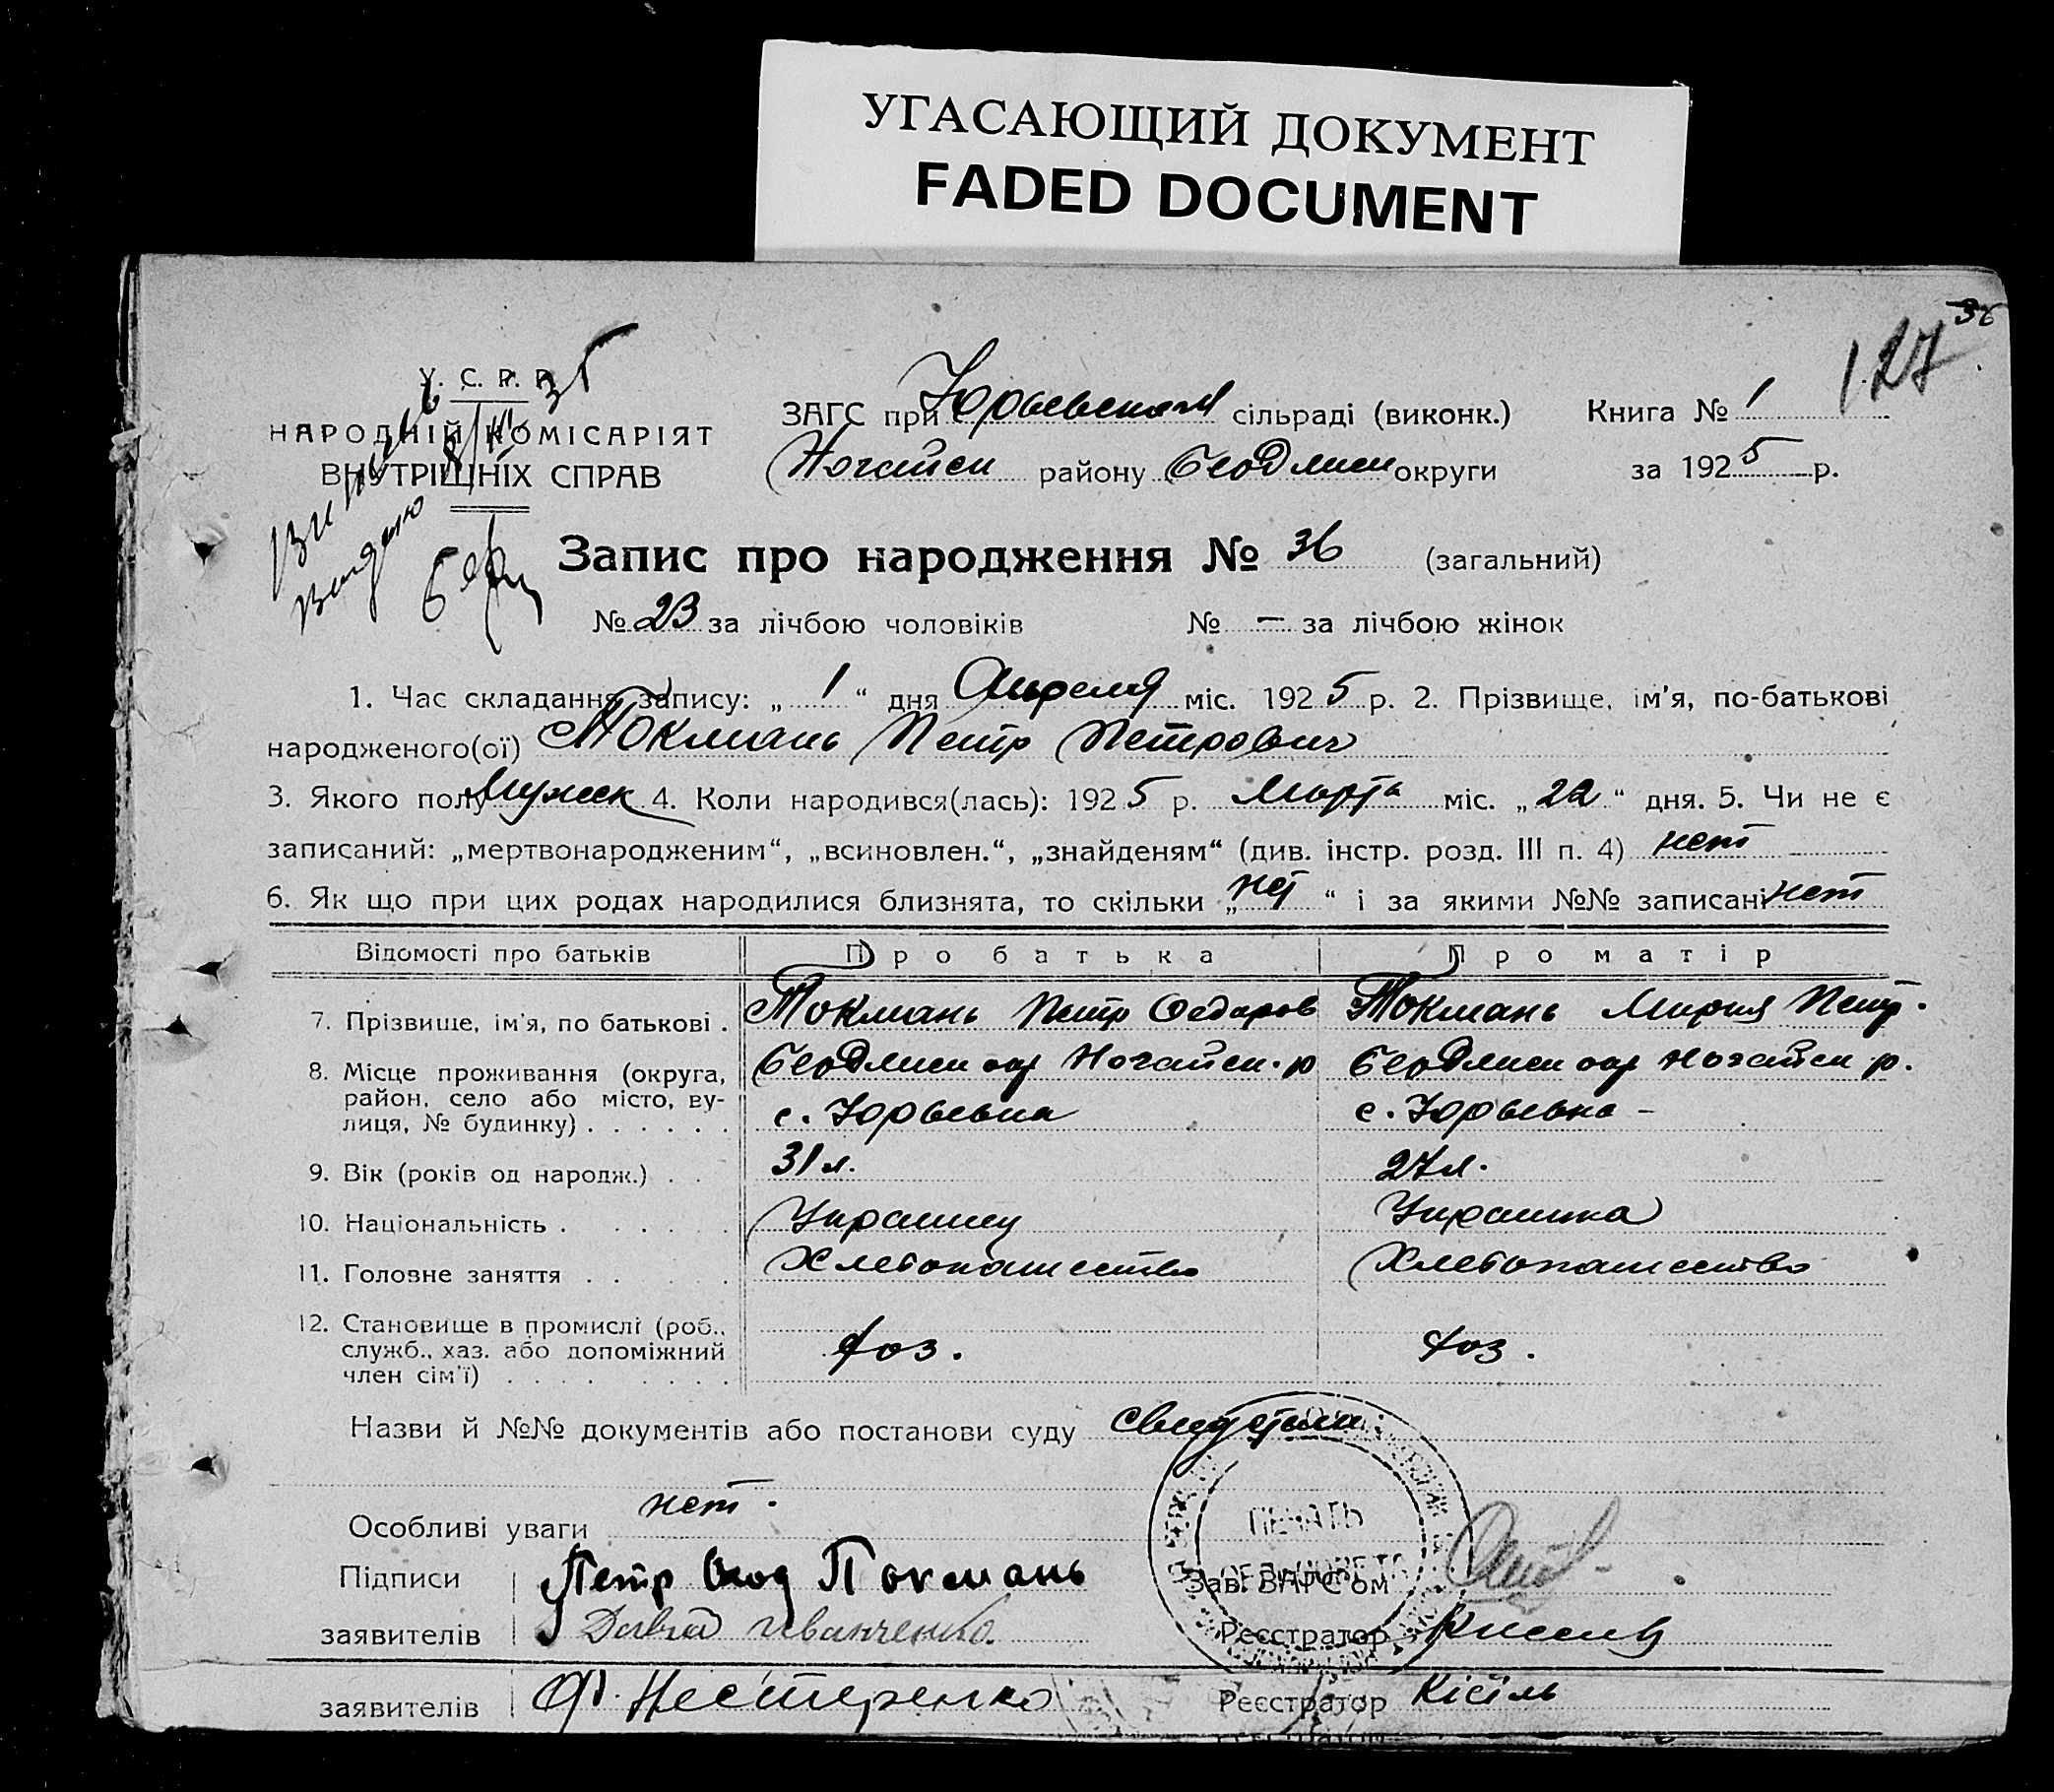 УГАСАЮЩИЙ ДОКУМЕНТ
FADED DOCUMENT
36
127
У. С. Р. Р.
НАРОДНІЙ КОМІСАРІЯТ
ВНУТРІШНІХ СПРАВ
ЗАГС при Юрьевском сільраді (виконк.) Книга № 1
Ногайск району Бердянск округи за 1925 р.
Запис про народження № 36 (загальний)
№ 23 за лічбою чоловіків № – за лічбою жінок
1. Час складання запису: „ 1 “ дня Апреля міс. 1925 р. 2. Прізвище, ім'я, по-батькові
народженого(ої) Токмань Петр Петрович
3. Якого полу Мужск 4. Коли народився(лась): 1925 р. Марта міс. „ 22 “ дня. 5. Чи не є
записаний: „мертвонародженим“, „всиновлен.“, „знайденям“ (див. інстр. розд. III п. 4) нет
6. Як що при цих родах народилися близнята, то скільки „ нет “ і за якими №№ записані нет
Відомості про батьків Про батька Про матір
7. Прізвище, ім'я, по батькові . Токмань Петр Федоров Токмань Мария Петр.
8. Місце проживання (округа, район, село або місто, вулиця, № будинку) . . . . . . Бердянск окр Ногайск. р Бердянск окр Ногайск р.
с. Юрьевка с. Юрьевка –
9. Вік (років од народж.) . . 31 л. 27 л.
10. Національність . . . . . Украинец Украинка
11. Головне заняття . . . . Хлебопашество Хлебопашество
12. Становище в промислі (роб., служб., хаз. або допоміжний член сім'ї) . . . . . . . . хоз. хоз.
Назви й №№ документів або постанови суду
Особливі уваги нет.
Підписи Петр Токмань Зав. ЗАГС'ом
заявителів Давид Иванченко Реєстратор
заявителів Ф. Нестеренко Реєстратор Кісіль
ПЕЧАТЬ